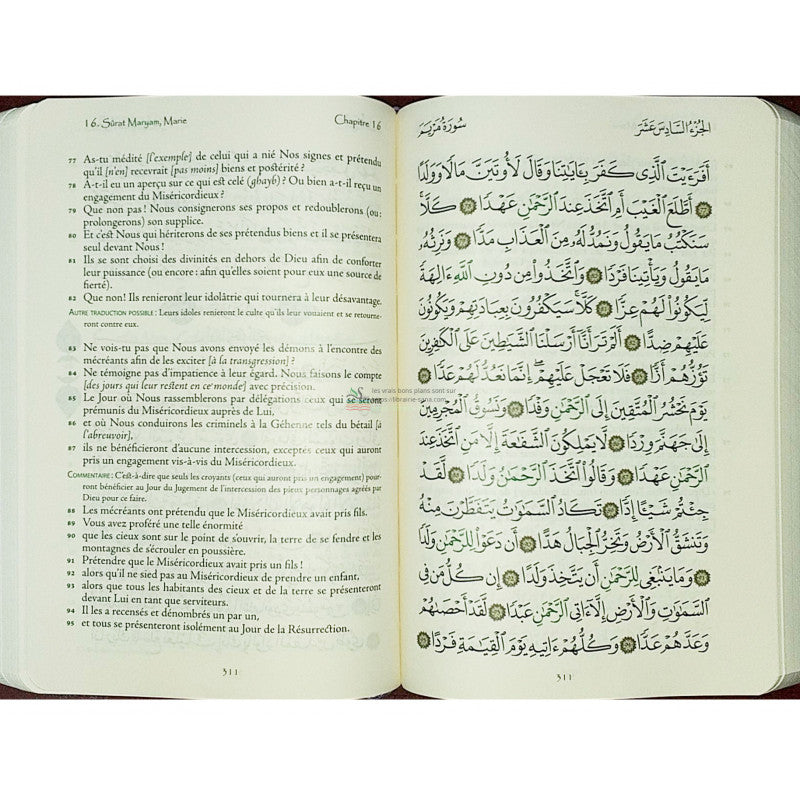 16. Sûrat Maryam, Marie Chapitre 16
77 As-tu médité [l'exemple] de celui qui a nié Nos signes et prétendu
qu'il [n'en] recevrait [pas moins] biens et postérité ?
78 A-t-il eu un aperçu sur ce qui est celé (ghayb) ? Ou bien a-t-il reçu un
engagement du Miséricordieux ?
79 Que non pas ! Nous consignerons ses propos et redoublerons (ou :
prolongerons) son supplice.
80 Et c'est Nous qui hériterons de ses prétendus biens et il se présentera
seul devant Nous !
81 Ils se sont choisi des divinités en dehors de Dieu afin de conforter
leur puissance (ou encore : afin qu'elles soient pour eux une source de
fierté).
82 Que non! Ils renieront leur idolâtrie qui tournera à leur désavantage.
Autre traduction possible : Leurs idoles renieront le culte qu'ils leur vouaient et se retourne-
ront contre eux.
83 Ne vois-tu pas que Nous avons envoyé les démons à l'encontre des
mécréants afin de les exciter [à la transgression] ?
84 Ne témoigne pas d'impatience à leur égard. Nous faisons le compte
[des jours qui leur restent en ce monde] avec précision.
85 Le Jour où Nous rassemblerons par délégations ceux qui se seront
prémunis du Miséricordieux auprès de Lui,
86 et où Nous conduirons les criminels à la Géhenne tels du bétail [à
l'abreuvoir],
87 ils ne bénéficieront d'aucune intercession, exceptés ceux qui auront
pris un engagement vis-à-vis du Miséricordieux.
Commentaire : C'est-à-dire que seuls les croyants (ceux qui auront pris un engagement) pour-
ront bénéficier au Jour du Jugement de l'intercession des pieux personnages agréés par
Dieu pour ce faire.
88 Les mécréants ont prétendu que le Miséricordieux avait pris fils.
89 Vous avez proféré une telle énormité
90 que les cieux sont sur le point de s'ouvrir, la terre de se fendre et les
montagnes de s'écrouler en poussière.
91 Prétendre que le Miséricordieux avait pris un fils !
92 alors qu'il ne sied pas au Miséricordieux de prendre un enfant,
93 alors que tous les habitants des cieux et de la terre se présenteront
devant Lui en tant que serviteurs.
94 Il les a recensés et dénombrés un par un,
95 et tous se présenteront isolément au Jour de la Résurrection.
311
les vrais bons plans sont sur
https://librairie-sana.com
الجزء السادس عشر سورة مريم
أَفَرَءَيْتَ ٱلَّذِى كَفَرَ بِـَٔايَٰتِنَا وَقَالَ لَأُوتَيَنَّ مَالًا وَوَلَدًا
٧٧ أَطَّلَعَ ٱلْغَيْبَ أَمِ ٱتَّخَذَ عِندَ ٱلرَّحْمَٰنِ عَهْدًا ٧٨ كَلَّا
سَنَكْتُبُ مَا يَقُولُ وَنَمُدُّ لَهُۥ مِنَ ٱلْعَذَابِ مَدًّا ٧٩ وَنَرِثُهُۥ
مَا يَقُولُ وَيَأْتِينَا فَرْدًا ٨٠ وَٱتَّخَذُوا۟ مِن دُونِ ٱللَّهِ ءَالِهَةً
لِّيَكُونُوا۟ لَهُمْ عِزًّا ٨١ كَلَّا سَيَكْفُرُونَ بِعِبَادَتِهِمْ وَيَكُونُونَ
عَلَيْهِمْ ضِدًّا ٨٢ أَلَمْ تَرَ أَنَّآ أَرْسَلْنَا ٱلشَّيَٰطِينَ عَلَى ٱلْكَٰفِرِينَ
تَؤُزُّهُمْ أَزًّا ٨٣ فَلَا تَعْجَلْ عَلَيْهِمْ إِنَّمَا نَعُدُّ لَهُمْ عَدًّا ٨٤
يَوْمَ نَحْشُرُ ٱلْمُتَّقِينَ إِلَى ٱلرَّحْمَٰنِ وَفْدًا ٨٥ وَنَسُوقُ ٱلْمُجْرِمِينَ
إِلَىٰ جَهَنَّمَ وِرْدًا ٨٦ لَّا يَمْلِكُونَ ٱلشَّفَٰعَةَ إِلَّا مَنِ ٱتَّخَذَ عِندَ
ٱلرَّحْمَٰنِ عَهْدًا ٨٧ وَقَالُوا۟ ٱتَّخَذَ ٱلرَّحْمَٰنُ وَلَدًا ٨٨ لَّقَدْ
جِئْتُمْ شَيْـًٔا إِدًّا ٨٩ تَكَادُ ٱلسَّمَٰوَٰتُ يَتَفَطَّرْنَ مِنْهُ
وَتَنشَقُّ ٱلْأَرْضُ وَتَخِرُّ ٱلْجِبَالُ هَدًّا ٩٠ أَن دَعَوْا۟ لِلرَّحْمَٰنِ وَلَدًا
٩١ وَمَا يَنۢبَغِى لِلرَّحْمَٰنِ أَن يَتَّخِذَ وَلَدًا ٩٢ إِن كُلُّ مَن فِى
ٱلسَّمَٰوَٰتِ وَٱلْأَرْضِ إِلَّآ ءَاتِى ٱلرَّحْمَٰنِ عَبْدًا ٩٣ لَّقَدْ أَحْصَىٰهُمْ
وَعَدَّهُمْ عَدًّا ٩٤ وَكُلُّهُمْ ءَاتِيهِ يَوْمَ ٱلْقِيَٰمَةِ فَرْدًا ٩٥
311